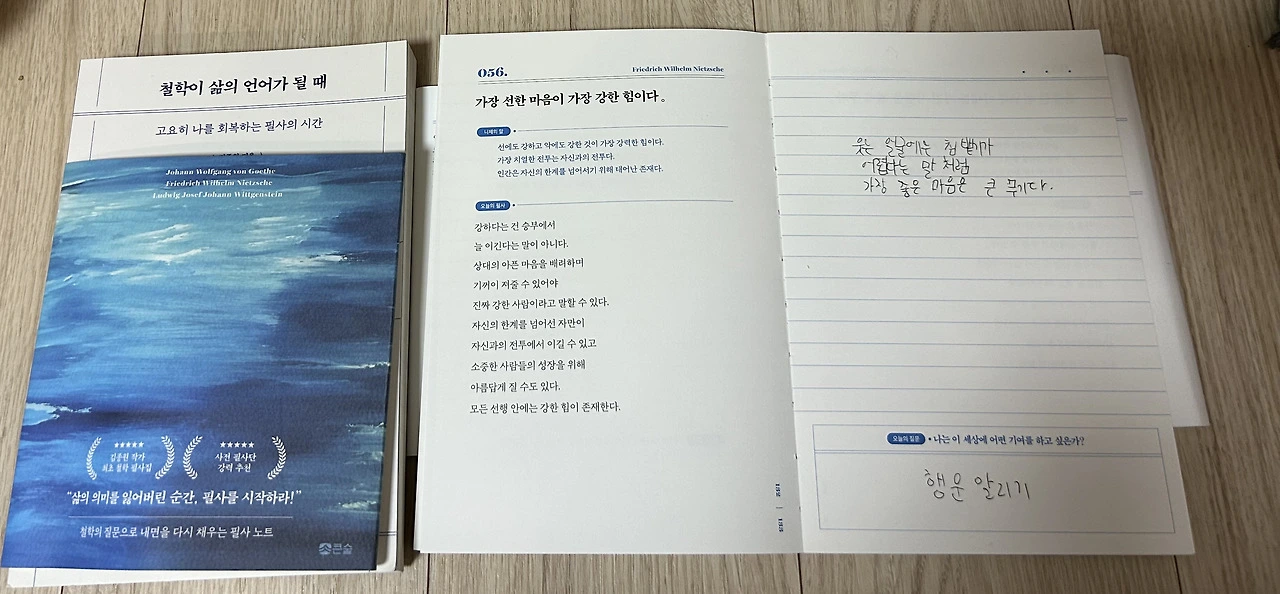 철학이 삶의 언어가 될 때
고요히 나를 회복하는 필사의 시간
Johann Wolfgang von Goethe
Friedrich Wilhelm Nietzsche
Ludwig Josef Johann Wittgenstein
★★★★★
김종원 작가
최초 철학 필사집
★★★★★
사전 필사단
강력 추천
“삶의 의미를 잃어버린 순간, 필사를 시작하라!”
철학의 질문으로 내면을 다시 채우는 필사 노트
큰숲
056.
Friedrich Wilhelm Nietzsche
가장 선한 마음이 가장 강한 힘이다.
니체의 말
선에도 강하고 악에도 강한 것이 가장 강력한 힘이다.
가장 치열한 전투는 자신과의 전투다.
인간은 자신의 한계를 넘어서기 위해 태어난 존재다.
오늘의 필사
강하다는 건 승부에서
늘 이긴다는 말이 아니다.
상대의 아픈 마음을 배려하며
기꺼이 져줄 수 있어야
진짜 강한 사람이라고 말할 수 있다.
자신의 한계를 넘어선 자만이
자신과의 전투에서 이길 수 있고
소중한 사람들의 성장을 위해
아름답게 질 수도 있다.
모든 선행 안에는 강한 힘이 존재한다.
132 | 133
웃는 얼굴에는 침 뱉기가
어렵다는 말처럼
가장 좋은 마음은 큰 무기다.
오늘의 질문 • 나는 이 세상에 어떤 기여를 하고 싶은가?
행운 알리기